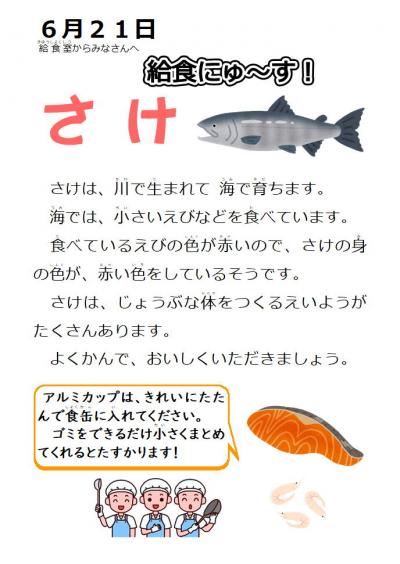 ６月２１日
給食室からみなさんへ
給食にゅ～す！
さけ
さけは、川で生まれて 海で育ちます。
海では、小さいえびなどを食べています。
食べているえびの色が赤いので、さけの身
の色が、赤い色をしているそうです。
さけは、じょうぶな体をつくるえいようが
たくさんあります。
よくかんで、おいしくいただきましょう。
アルミカップは、きれいにたた
んで食缶に入れてください。
ゴミをできるだけ小さくまとめ
てくれるとたすかります！